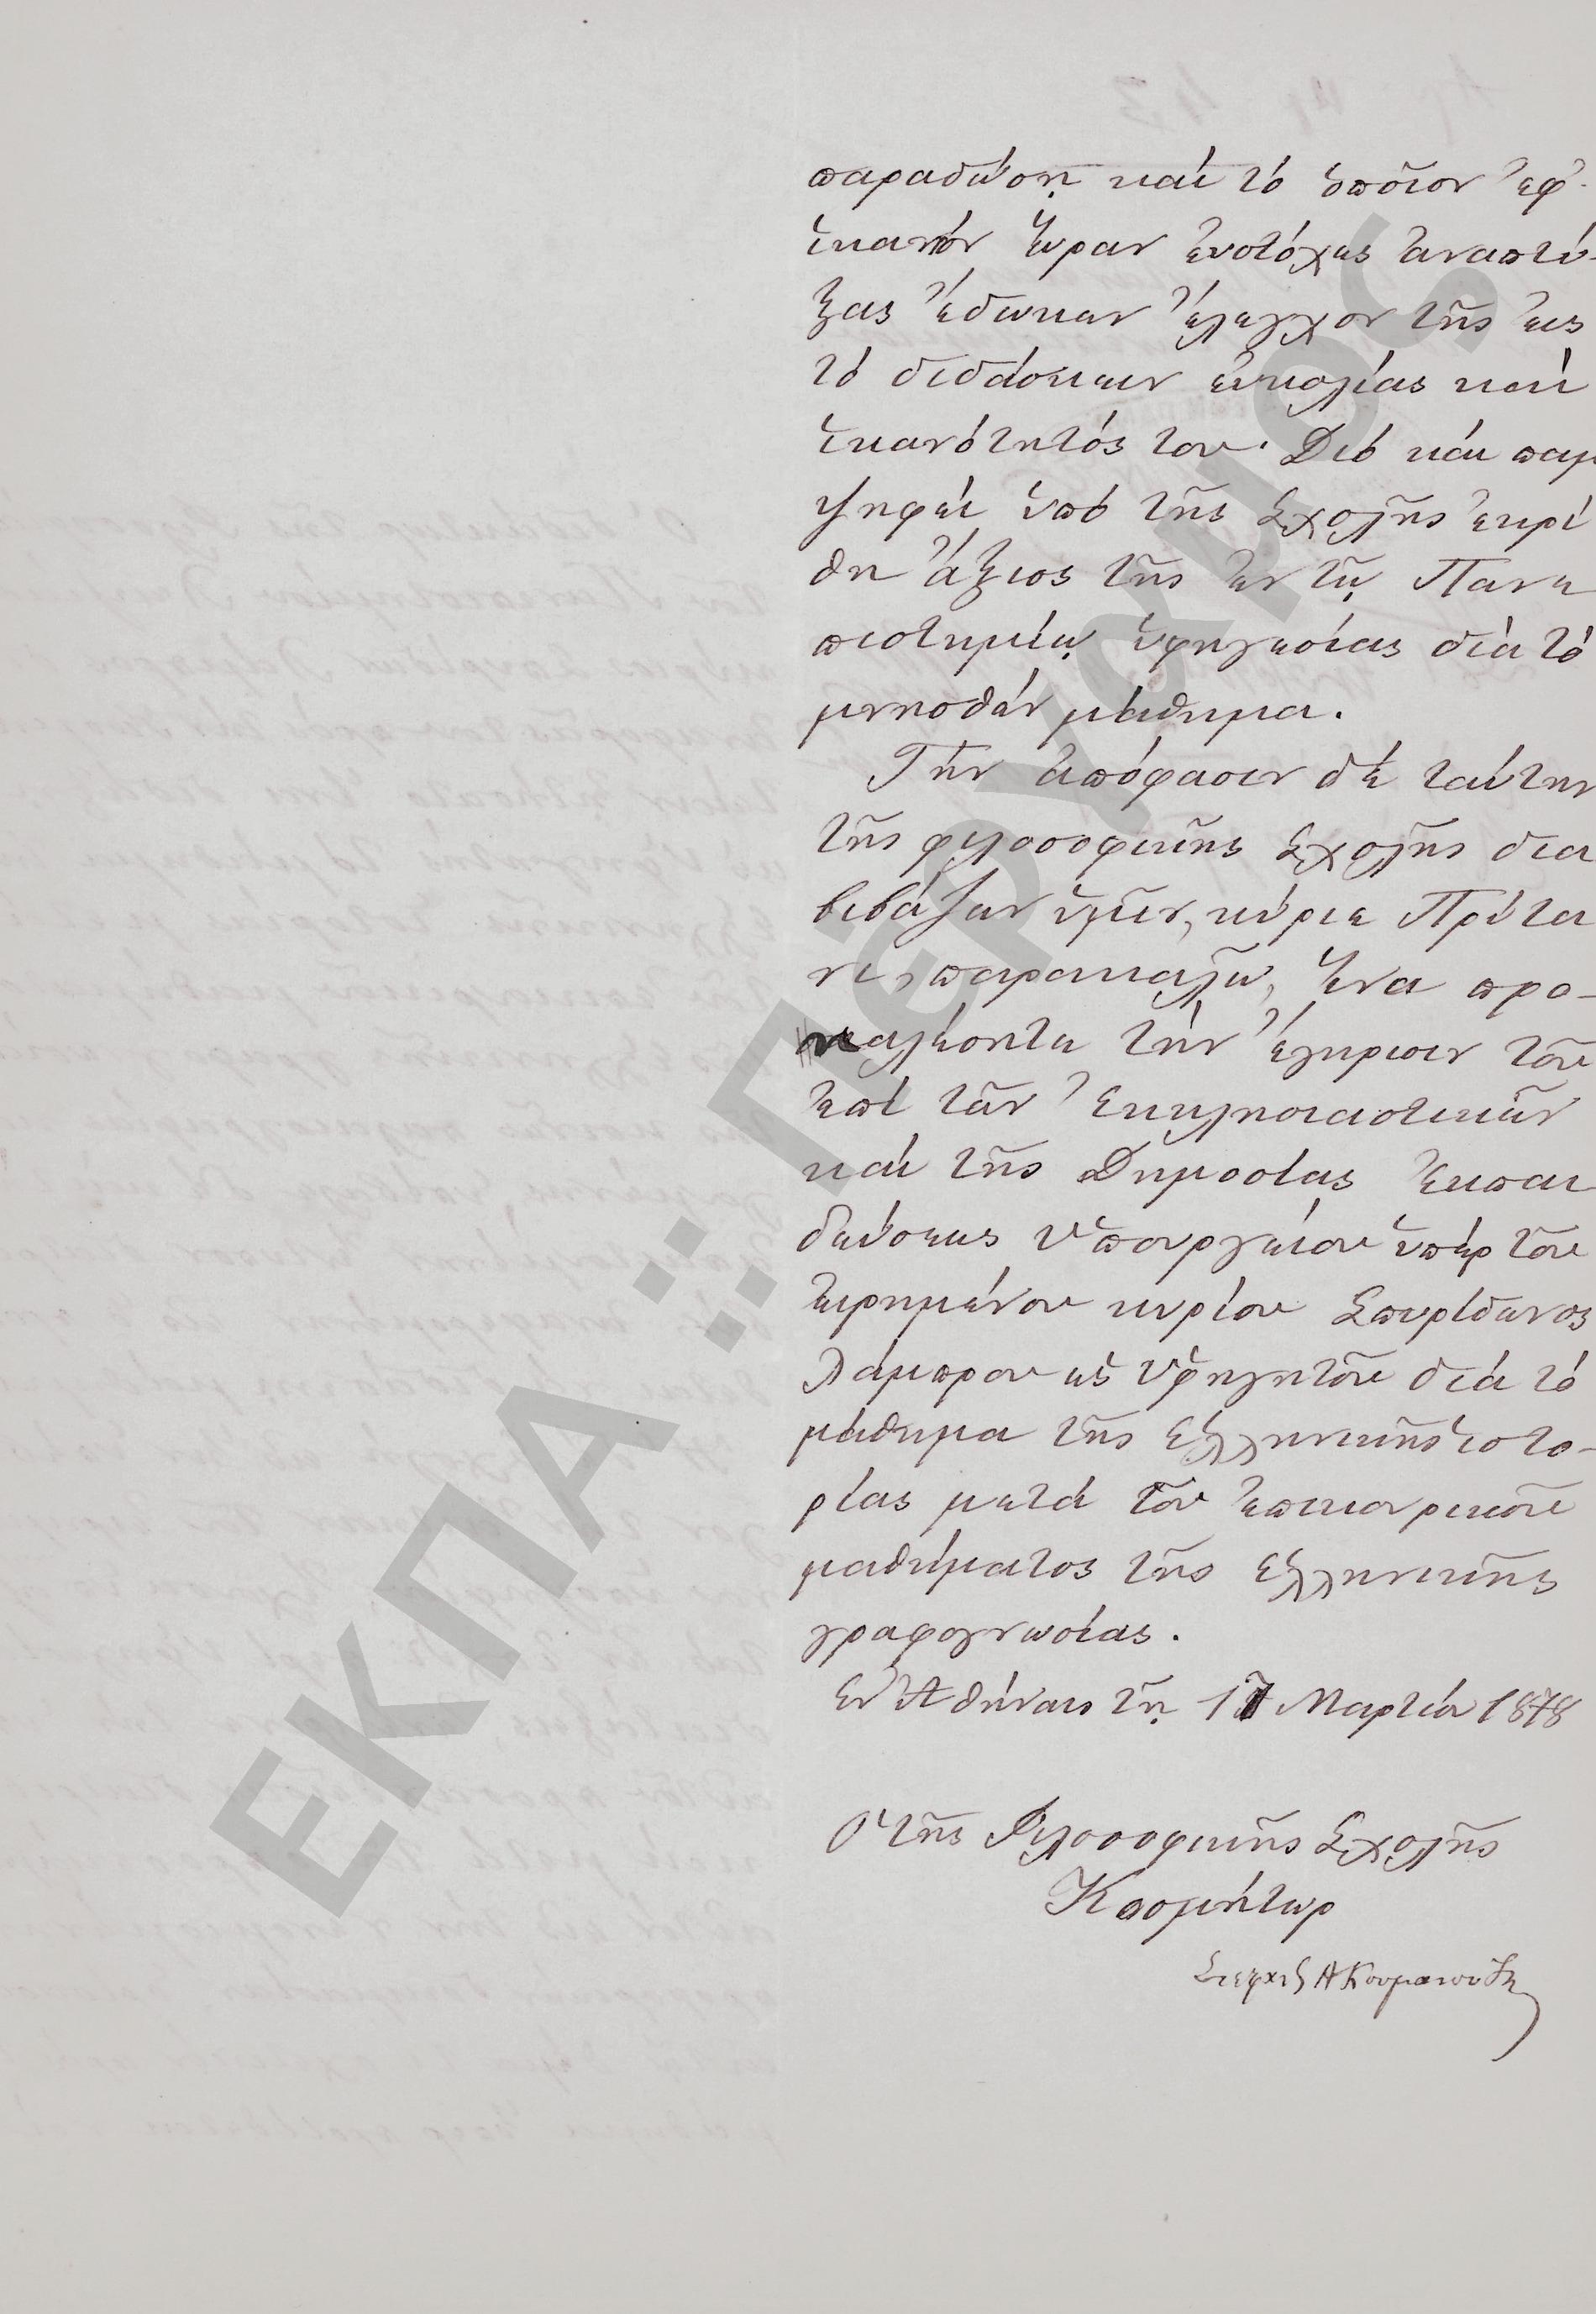 παραδώσῃ καὶ τὸ ὁποῖον ἐφ'
ἱκανὴν ὥραν εὐστόχως ἀναπτύ-
ξας ἔδωκεν ἔλεγχον τῆς εἰς
τὸ διδάσκειν εὐκολίας καὶ
ἱκανότητός του· Διὸ καὶ παμ
ψηφεὶ ὑπὸ τῆς Σχολῆς ἐκρί
θη ἄξιος τῆς ἐν τῷ Πανε
πιστημίῳ ὑφηγεσίας διὰ τὸ
μνησθὲν μάθημα.
Τὴν ἀπόφασιν δὲ ταύτην
τῆς φιλοσοφικῆς Σχολῆς δια
βιβάζων ὑμῖν, κύριε Πρύτα
νι, παρακαλῶ, ἵνα προ-
καλέσητε τὴν ἔγκρισιν τοῦ
ἐπὶ τῶν Ἐκκλησιαστικῶν
καὶ τῆς Δημοσίας Ἐκπαι
δεύσεως Ὑπουργείου ὑπὲρ τοῦ
εἰρημένου κυρίου Σπυρίδωνος
Λάμπρου ὡς ὑφηγητοῦ διὰ τὸ
μάθημα τῆς Ἑλληνικῆς ἱστο-
ρίας μετὰ τοῦ ἐπικουρικοῦ
μαθήματος τῆς Ἑλληνικῆς
γραφογνωσίας.
Ἐν Ἀθήναις τῇ 17 Μαρτίου 1878
Ὁ τῆς Φιλοσοφικῆς Σχολῆς
Κοσμήτωρ
Στέφανος Α Κουμανούδης
ΕΚΠΑ :: ΠΕΡΓΑΜΟΣ